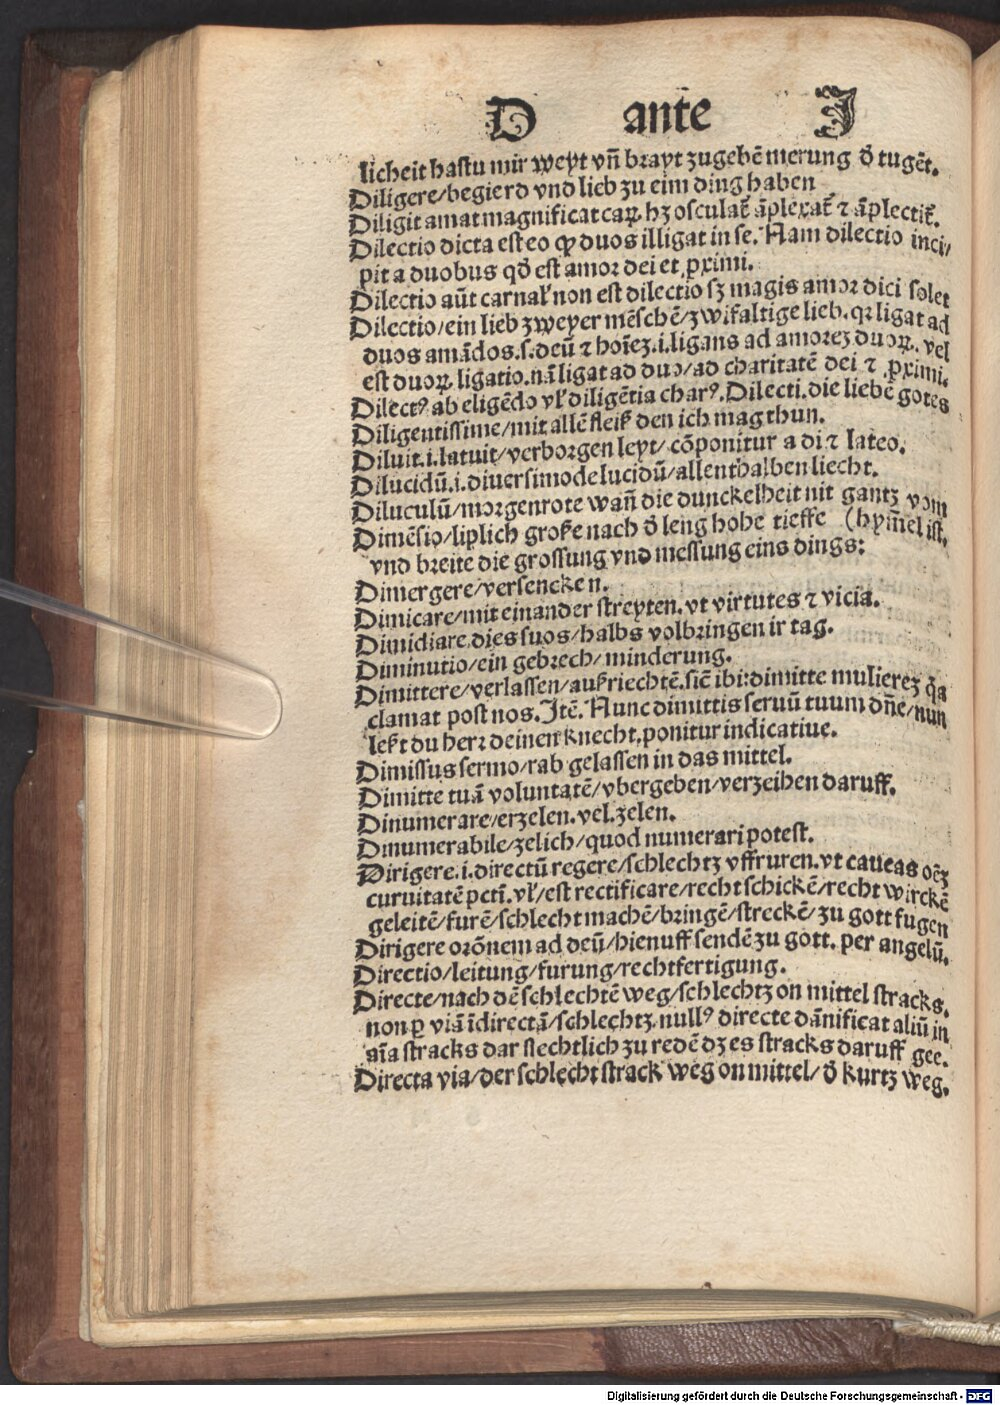 D ante J
licheit hastu mir weyt vñ brayt zugebē merung ð tugēt.
Diligere/begierd vnd lieb zu eim ding haben
Diligit amat magnificat caꝝ. hꝫ osculat̃ āplexat̃ ⁊ āplectit̃.
Dilectio dicta est eo ꝙ duos illigat in se. Nam dilectio inci/
pit a duobus qð est amor dei et ꝓximi.
Dilectio aūt carnal̃ non est dilectio sꝫ magis amor dici solet
Dilectio/ein lieb zweyer mēschē/zwifaltige lieb. qꝛ ligat ad
duos amādos.s.deū ⁊ hoīeꝫ.i.ligans ad amoreꝫ duoꝝ. vel
est duoꝝ. ligatio. nā ligat ad duo/ad charitatē dei ⁊ ꝓximi.
Dilectꝰ ab eligēdo vl̃ diligētia charꝰ. Dilecti. die liebē gotes
Diligentissime/mit allē fleiß den ich mag thun.
Diluit.i.latuit/verborgen leyt/ cōponitur a di ⁊ lateo.
Dilucidū.i.diuersimode lucidū/allenthalben liecht.
Diluculū/morgenrote wañ die dunckelheit nit gantz vom
Dimēsio/liplich große nach ð leng hohe tieffe (hym̄el ist.
vnd breite die grossung vnd messung eins dings:
Dimergere/versencken.
Dimicare/mit einander streyten. vt virtutes ⁊ vicia.
Dimidiare dies suos/halbs volbringen ir tag.
Diminutio/ein gebrech/ minderung.
Dimittere/verlassen/außriechtē. siē ibi: dimitte mulierez q̃a
clamat post nos. Jtē. Nunc dimittis seruū tuum dñe/nun
leßt du herr deinen knecht. ponitur indicatiue.
Dimissus sermo/rab gelassen in das mittel.
Dimitte tuā voluntatē/vbergeben/verzeihen daruff.
Dinumerare/erzelen. vel. zelen.
Dinumerabile/zelich/quod numerari potest.
Dirigere.i.directū regere/schlechtz vffruren. vt caueas oēꝫ
curuitatē pctī. vl̃/est rectificare/recht schickē/recht wirckē
geleitē/furē/schlecht machē/bringē/streckē/zu gott fugen
Dirigere orōnem ad deū/hienuff sendē zu gott. per angelū.
Directio/leitung/furung/rechtfertigung.
Directe/nach dē schlechtē weg/schlechtz on mittel stracks.
non ꝑ viā īdirectā/schlechtz. nullꝰ directe dānificat aliū in
aīa stracks dar slechtlich zu redē dz es stracks daruff gee.
Directa via/der schlecht strack weg on mittel/ ð kurtz weg.
Digitalisierung gefördert durch die Deutsche Forschungsgemeinschaft - DFG